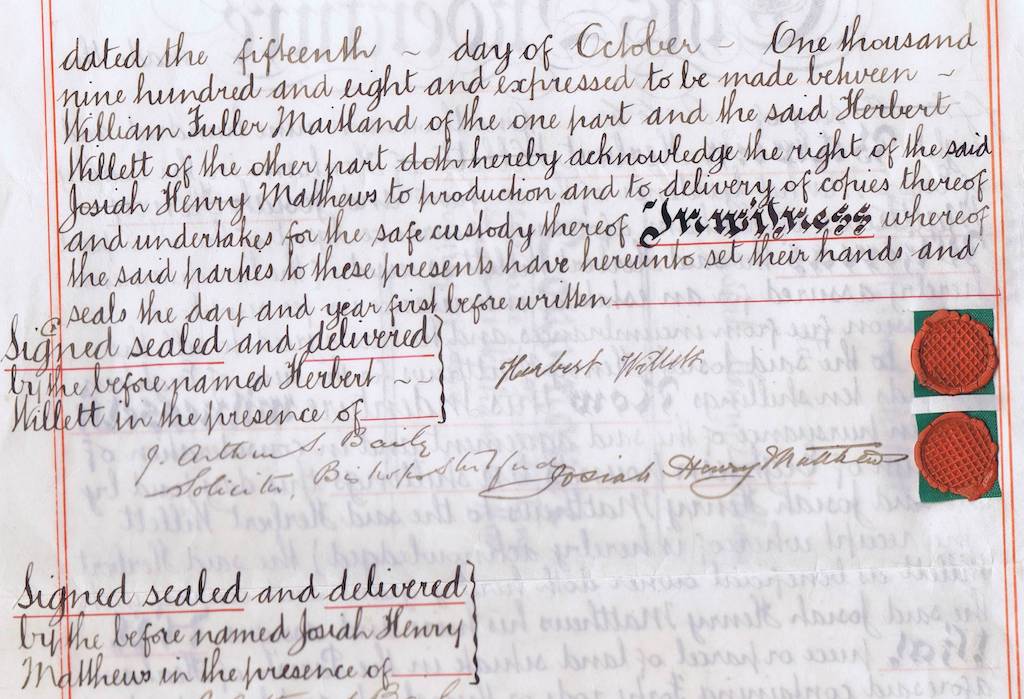 dated the fifteenth ~ day of October - One thousand
nine hundred and eight and expressed to be made between ~
William Fuller Maitland of the one part and the said Herbert
Willett of the other part doth hereby acknowledge the right of the said
Josiah Henry Matthews to production and to delivery of copies thereof
and undertakes for the safe custody thereof In witness whereof
the said parties to these presents have hereunto set their hands and
seals the day and year first before written
Signed sealed and delivered
by the before named Herbert ~ ~
Willett in the presence of
Herbert Willett
J. Arthur S. Baily
Solicitor, Bishops Stortford
Josiah Henry Matthews
Signed sealed and delivered
by the before named Josiah Henry
Matthews in the presence of